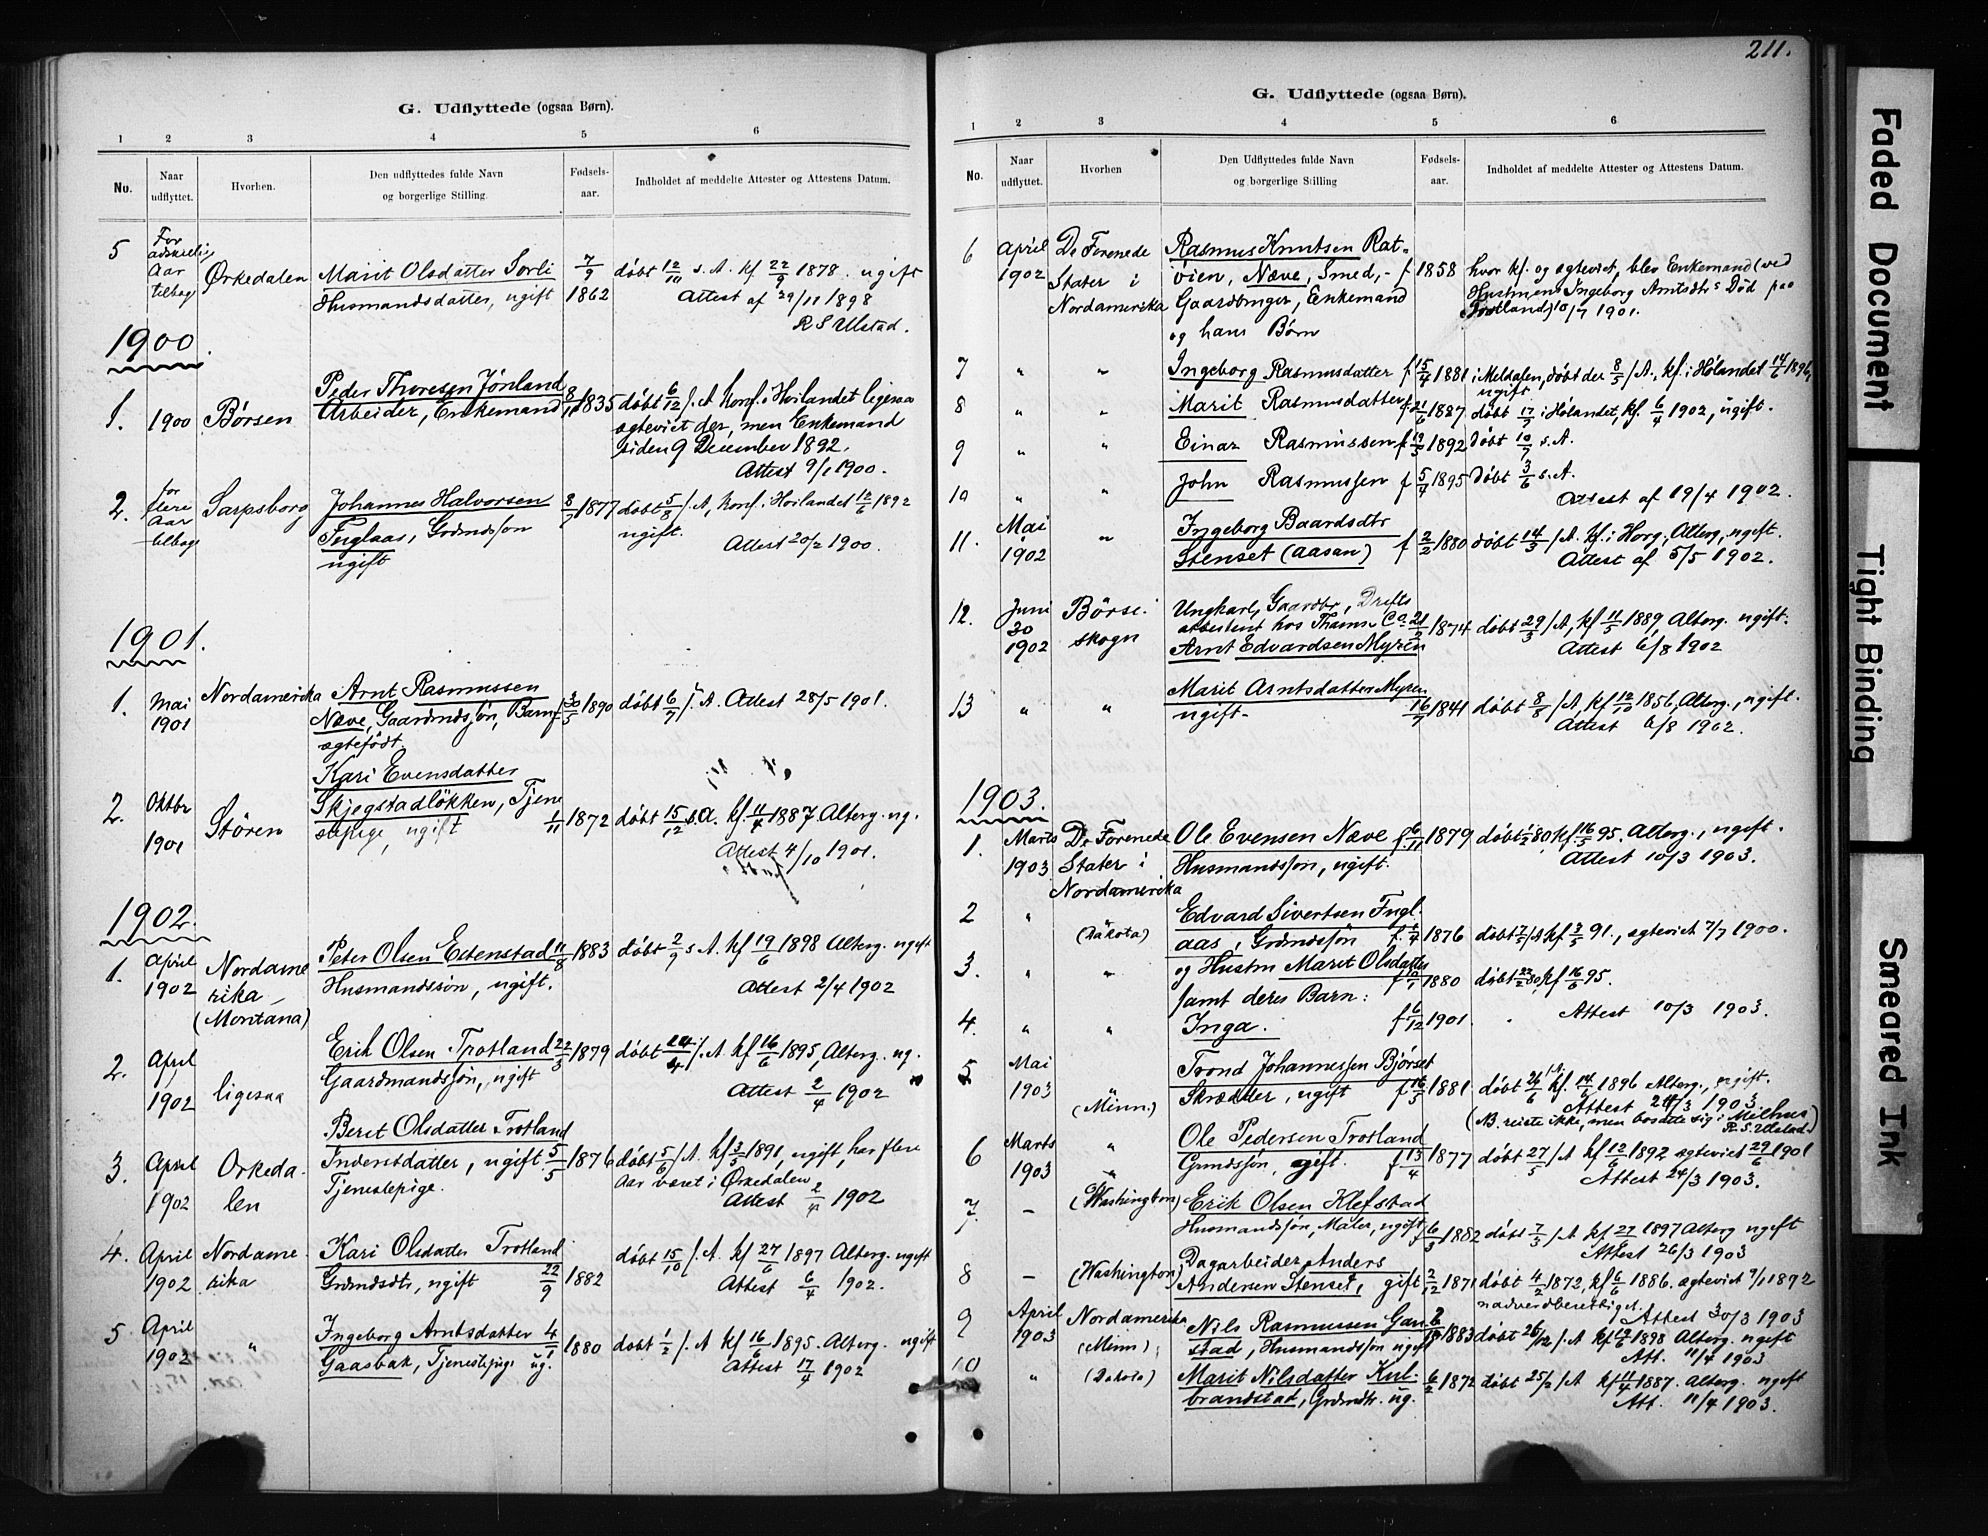 G. Udflyttede (ogsaa Børn).
1 2 3 4 5 6
No. Naar udflyttet. Hvorhen. Den udflyttedes fulde Navn og borgerlige Stilling. Fødsels-aar. Indholdet af meddelte Attester og Attestens Datum.
5 For adskellig Aar tilbage Ørkedalen Marit Olsdatter Sorli 7/9 døbt 12/10 s. A. kf 22/9 1878. ugift
Husmandsdatter, ugift 1862 Attest af 29/11 1898
R S Ulstad.
1900.
Peder Thoresen Jönland
1. 1900 Börsen Arbeider, Enkemand 8/11 1835 døbt 6/12 s. A. konf. i Hoilandet ligesaa
ægteviet der, men Enkemand
siden 9 December 1892.
Attest 9/1 1900.
2. for flere Aar tilbage Sarpsborg Johannes Halvorsen 8/7 1877 døbt 5/8 s. A, konf. i Hoilandet 12/6 1892
Fuglaas, Grdmdssøn ugift.
ugift Attest 20/2 1900.
1901.
1. Mai Nordamerika Arnt Rasmussen
1901 Næve, Gaardmdssøn, Barn f 30/5 1890 døbt 6/7 s. A. Attest 28/5 1901.
ægtefödt.
Kari Evensdatter
2. Oktbr Skjegstadløkken, Tjene
1901 Stören stepige, ugift 1/11 1872 døbt 15/12 s.A. kf. 11/4 1887 Alterg. ug.
Attest 4/10 1901.
1902.
1. April Nordame Peter Olsen Estenstad 11/8 1883 døbt 2/9 s. A. kf 19/6 1898 Alterg. ugift
1902 rika Husmandssön, ugift. Attest 2/4 1902
(Montana)
2. April Erik Olsen Trotland 22/3 1879 døbt 14/4 s. A. kf 16/6 1895, Alterg. ug.
1902 ligesaa Gaardmandssøn, ugift Attest 2/4 1902
Beret Olsdatter Trotland
3. April Orkeda Inderstdatter, ugift 5/5 1876 døbt 5/6 s. A. kf 3/5 1891, ugift, har flere
1902 len Tjenestepige. Aar været i Ørkedalen
Attest 2/4 1902
4. April Nordame Kari Olsdatter Trotland døbt 15/10 s. A. kf 27/6 1897 Alterg. ugift
1902 rika Grdmdsdtr, ugift 22/9 1882 Attest 6/4 1902.
5 April Ingeborg Arntsdatter 4/1
1902 " Gaasbak, Tjenestepige ug. 1880 døbt 1/2 s. A kf 16/6 1895. Alterg. ugift
Attest 17/4 1902
211.
G. Udflyttede (ogsaa Børn).
1 2 3 4 5 6
No. Naar udflyttet. Hvorhen Den Udflyttedes fulde Navn og borgerlige Stilling Fødsels-aar. Indholdet af meddelte Attester og Attestens Datum.
6 April De Forenede Rasmus Knutsen Rat-
1902 Stater i vien, Næve, Smed, - f 1858 hvor kf. og ægteviet, blev Enkemand (ved
Nordamerika Gaardbruger, Enkemand Hustruens Ingeborg Arntsdtrs Död paa
og hans Børn Trotland) 10/7 1901.
7 " " Ingeborg Rasmusdatter f 15/4 1881 i Meldalen, døbt der 8/5 s. A., kf. i Hølandet 14/6 1896,
ugift
8 " " Marit Rasmusdatter f. 21/6 1887 døbt 17/7 i Hølandet, kf. 6/4 1902, ugift.
9 " " Einar Rasmussen f 19/5 1892 døbt 10/7 s. A.
10 " " John Rasmussen f 5/4 1895 døbt 3/6 s. A.
Attest af 19/4 1902.
Mai Ingeborg Baardsdtr
11. 1902 " Stenset (Aasan) f 2/2 1880 døbt 14/3 s. A. kf. i Horg, Alterg., ugift.
Attest af 5/5 1902.
12. Juni Börse Ungkarl, Gaardbr, Drifts
30 skogn assistent hos Thams & Co 21/2 1874 døbt 29/3 s. A, kf 11/5 1889 Alterg. ugift.
1902 Arnt Edvardsen Myren Attest 6/8 1902
Marit Arntsdatter Myren
13 " " ugift 16/7 1841 døbt 8/8 s. A, kf 12/10 1856, Alterg., ugift.
Attest 6/8 1902.
1903.
1. Marts De Forenede Ole Evensen Næve f. 6/11 1879 døbt 1/2 80 kf 16/5 95. Alterg., ugift.
1903 Stater i Husmandssøn, ugift. Attest 10/3 1903.
Nordamerika
2 " Edvard Sivertsen Fugl-
(Dakota) aas, Grdmdssøn 1876 døbt 7/5 s. A kf. 3/5 91., ægteviet 7/7 1900.
3. " " og Hustru Marit Olsdatter 1880 døbt 22/2 80, kf 16/6 95.
samt deres Barn: Attest 10/3 1903.
4. " " Inga. f 6/12 1901.
5 Mai Trond Johannessen Bjørset
1903 (Minn.) Skrædder, ugift f 16/5 1881 døbt 26/6 kf. 14/6 1896 Alterg., ugift.
Attest 24/3 1903
(NB. reiste ikke, men bosatte sig i Melhus
R. S. Ulstad.)
6 Marts " Ole Pedersen Trotland
1903 Grmdssøn, gift. f 13/4 1877 døbt 27/5 s. A kf 12/6 1892 ægteviet 29/6 1901
Attest 24/3 1903.
7. - (Washington) Erik Olsen Klefstad
Husmandssøn, Maler, ugift f 6/3 1882 døbt 7/3 s. A kf 27/6 1897 Alterg ugift
Attest 26/3 1903
8 - (Washington) Dagarbeider Anders
Andersen Stenset, gift 2/12 1871 døbt 4/2 1872, kf 6/6 1886. ægteviet 9/1 1892
nadverdberettiget. Attest 30/3 1903
9 April Nordamerika Nils Rasmussen Gau
1903 (Minn) stad, Husmandssøn ugift 1883 døbt 26/12 s. A kf 12/6 1898 Alterg. ugift
Att. 11/4 1903
10 " (Dakota) Marit Nilsdatter Kul-
brandstad, Grdmdtr. ug. 6/2 1872 døbt 25/2 s. A kf 11/4 1887. Alterg. ugift
Att. 11/4 1903.
Faded Document
Tight Binding
Smeared Ink